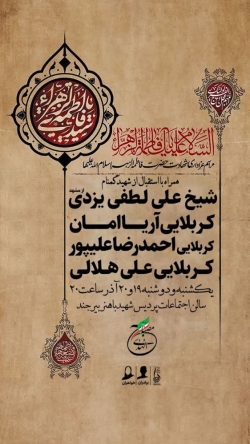 السلام علیک یا فاطمة الزهرا
مراسم عزاداری شهادت حضرت فاطمة الزهرا سلام الله علیها
همراه با استقبال از شهید گمنام
شیخ علی لطفی یزدی
کربلایی آریا امان
کربلایی احمدرضا علیپور
کربلایی علی هلالی
یکشنبه و دوشنبه ۱۹ و ۲۰ آذر ساعت ۲۰
سالن اجتماعات پردیس شهید باهنر بیرجند
برادران
خواهران